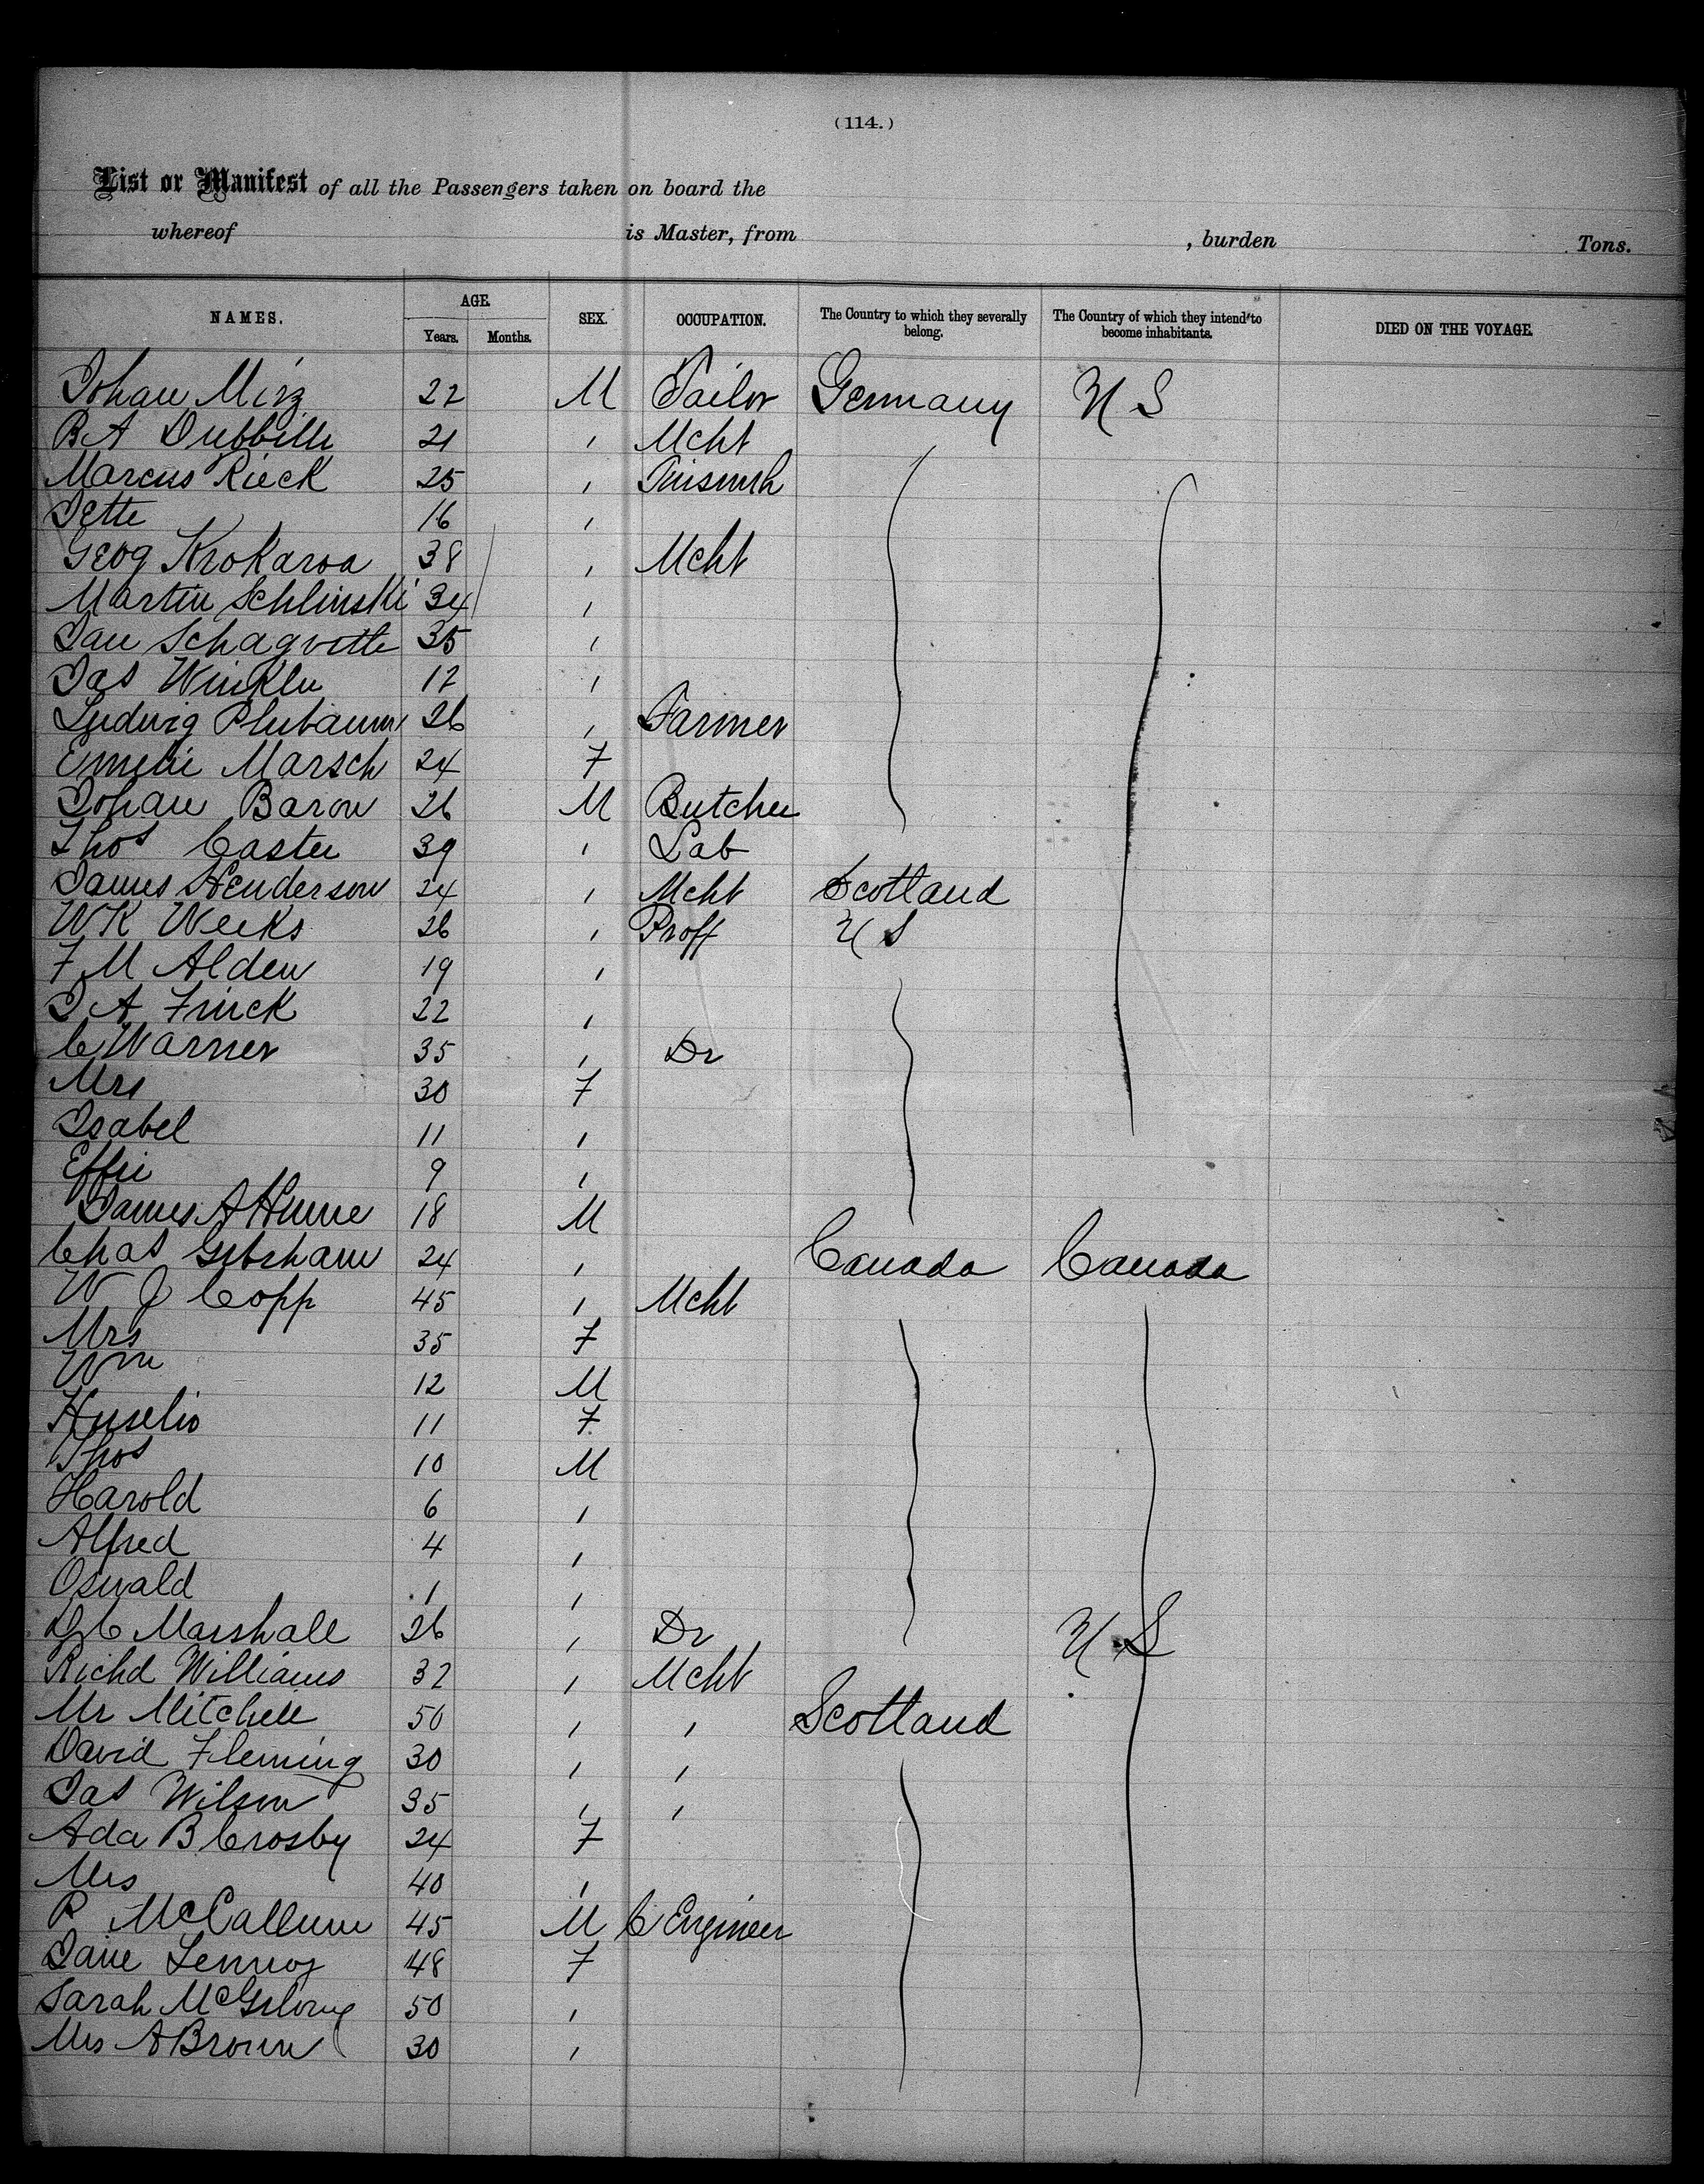 (114.)
List or Manifest of all the Passengers taken on board the
whereof is Master, from , burden Tons.
NAMES. AGE. Years. Months. SEX. OCCUPATION. The Country to which they severally belong. The Country of which they intend to become inhabitants. DIED ON THE VOYAGE.
Johan 22 M Tailor Germany U S
B A 21 , Mcht
Marcus Rieck 25 , Tinsmith
Jette 16 ,
Geog Krokaroa 38 , Mcht
Martin Schlinski 34 ,
Jan 35 ,
Jas Winkler ,
Ludwig 26 , Farmer
Emelie Marsch 24 F
Johan Baron 26 M Butcher
Thos Caster 39 , Lab
James Henderson 24 , Mcht Scotland
W K Weeks 26 , Proff U S
F M Alden 19 ,
J A Frick 22 ,
C Warner 35 , Dr
Mrs 30 F
Isabel 11 ,
Effie 9 ,
James A Hume 18 M
Chas 24 , Canada Canada
W J Copp 45 , Mcht
Mrs 35 F
Wm 12 M
11 F
Thos 10 M
Harold 6 ,
Alfred 4 ,
Oswald 1 ,
D C Marshall 26 , Dr U S
Richd Williams 32 , Mcht
Mr Mitchell 50 , , Scotland
David Fleming 30 , ,
Jas Wilson 35 , ,
Ada B Crosby 24 F
Mrs 40 ,
R McCallum 45 M C Engineer
Jane Lennox 48 F
Sarah 50 ,
Mrs A Brown 30 ,